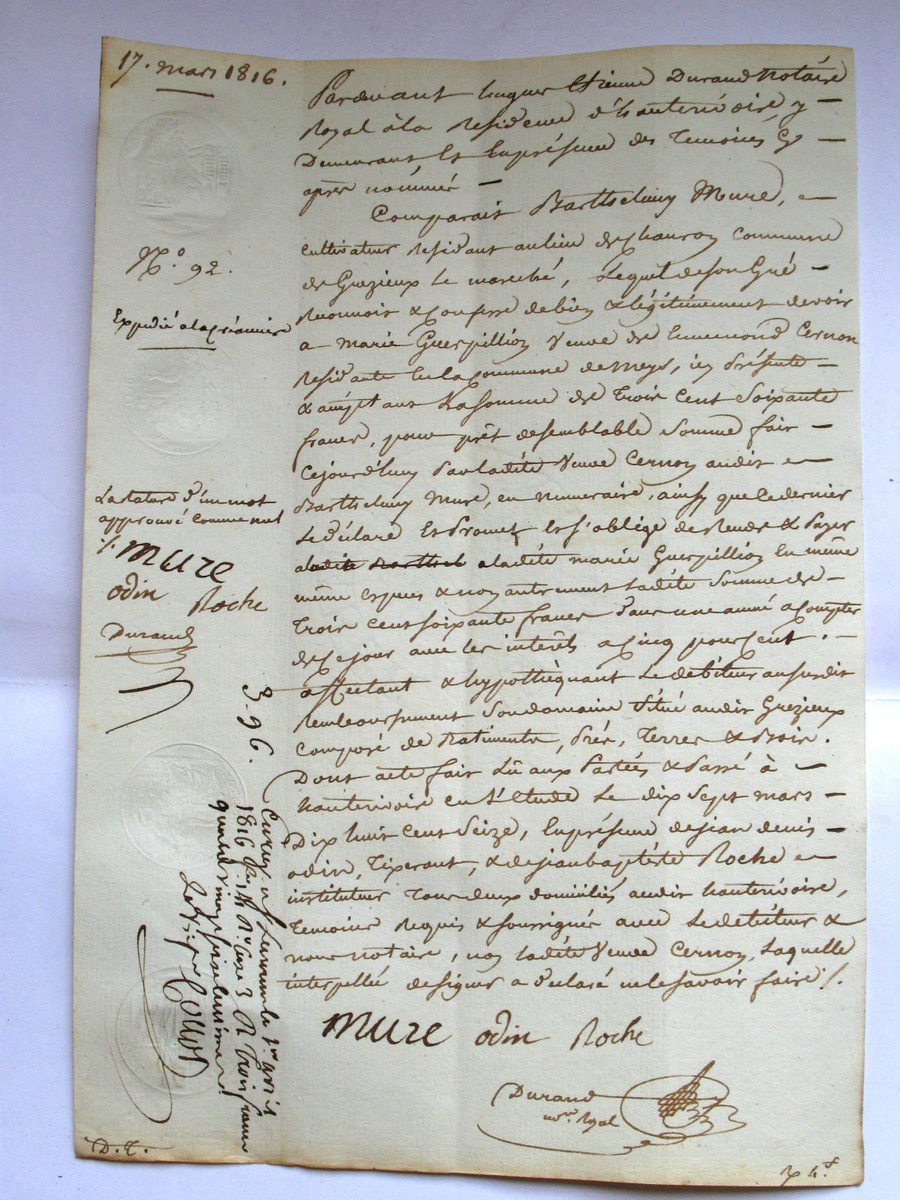 17. mars 1816.
Pardevant hugues Etienne Durand Notaire
Royal à la Residence d'hauterivoire, y
Demeurant Et En présence des Temoins Cy
après nommés
Comparait Barthelemy Mure,
cultivateur residant au lieu de Chauron commune
de Grezieux le marché, Lequel de son Gré
Reconnoit & Confesse de bien & légitimement devoir
a marie Guerpillion Veuve de Ennemond Cernon
Residante En la Commune de meys, icy Présente
& acceptant La somme de Trois Cent Soixante
francs, pour prêt de semblable Somme fait
Cejourd'huy Par ladite Veuve Cernon audit
Barthelemy Mure, en numeraire, ainsy que le dernier
Le déclare Et Promet Et s'oblige de Rendre & Payer
a ladite marie Guerpillion En même
même especes & non autrement Ladite Somme de
Trois Cent soixante francs dans une année a Compter
de Ce jour avec les intérêts a Cinq pour Cent.
affectant & hypothèquant Le debiteur au susdit
Remboursement Son domaine Situé audit Grezieux
Composé de Batiments, Prés, Terres & Bois.
Dont acte fait Lû aux Parties & Passé à
hauterivoire en l'Etude Le dix Sept mars
Dix huit Cent Seize, En présence de jean denis
odin, Tixerant, & de jean baptiste Roche
instituteur Tous deux domiciliés audit hauterivoire,
Temoins Requis & soussignés avec Le debiteur &
nous notaire, non Ladite Veuve Cernon, Laquelle
interpellée de signer a déclaré ne le savoir faire /.
MURE odin Roche
Durand
nore Royal
N.° 92.
Expedié a la Créancière
La rature d'un mot
approuvé comme nul
/. MURE
odin Roche
Durand
3-96.
1er avril
1816 3 R trois francs
quatre vingt seize centimes
D. T.